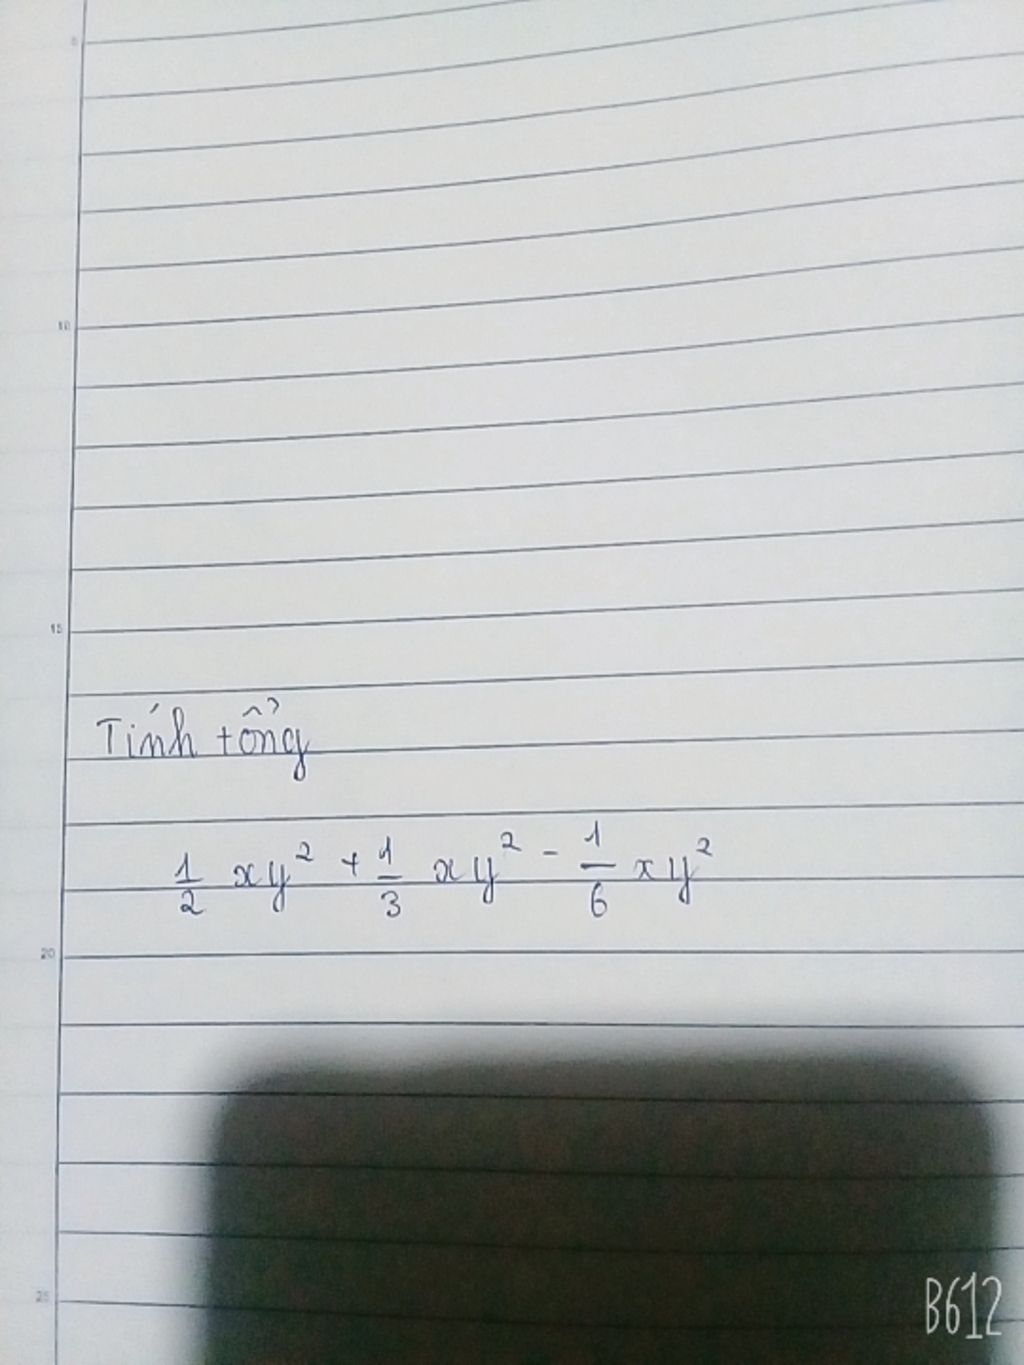 5
10
15
Tính tổng
1/2 xy² + 1/3 xy² - 1/6 xy²
20
25
B612